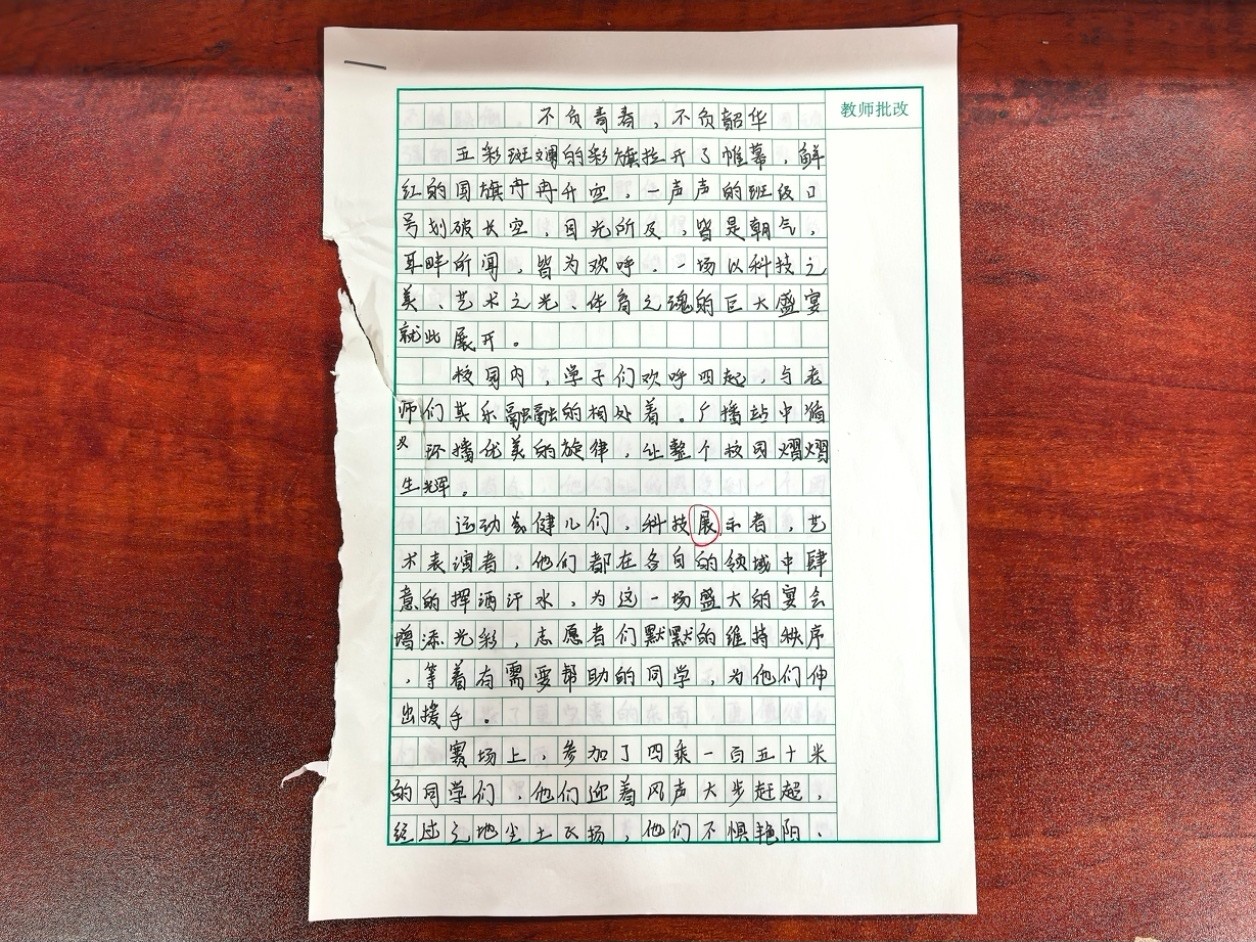 教师批改
不负青春，不负韶华
五彩斑斓的彩旗拉开了帷幕，鲜
红的国旗冉冉升空，一声声的班级口
号划破长空，目光所及，皆是朝气，
耳畔所闻，皆为欢呼，一场以科技之
美、艺术之光、体育之魂的巨大盛宴
就此展开。
校园内，学子们欢呼四起，与老
师们其乐融融的相处着。广播站中循
环播优美的旋律，让整个校园熠熠
生辉。
运动健儿们，科技展示者，艺
术表演者，他们都在各自的领域中肆
意的挥洒汗水，为这一场盛大的宴会
增添光彩，志愿者们默默的维持秩序
，等着有需要帮助的同学，为他们伸
出援手。
赛场上，参加了四乘一百五十米
的同学们，他们迎着风声大步赶超，
经过之地尘土飞扬，他们不惧艳阳、